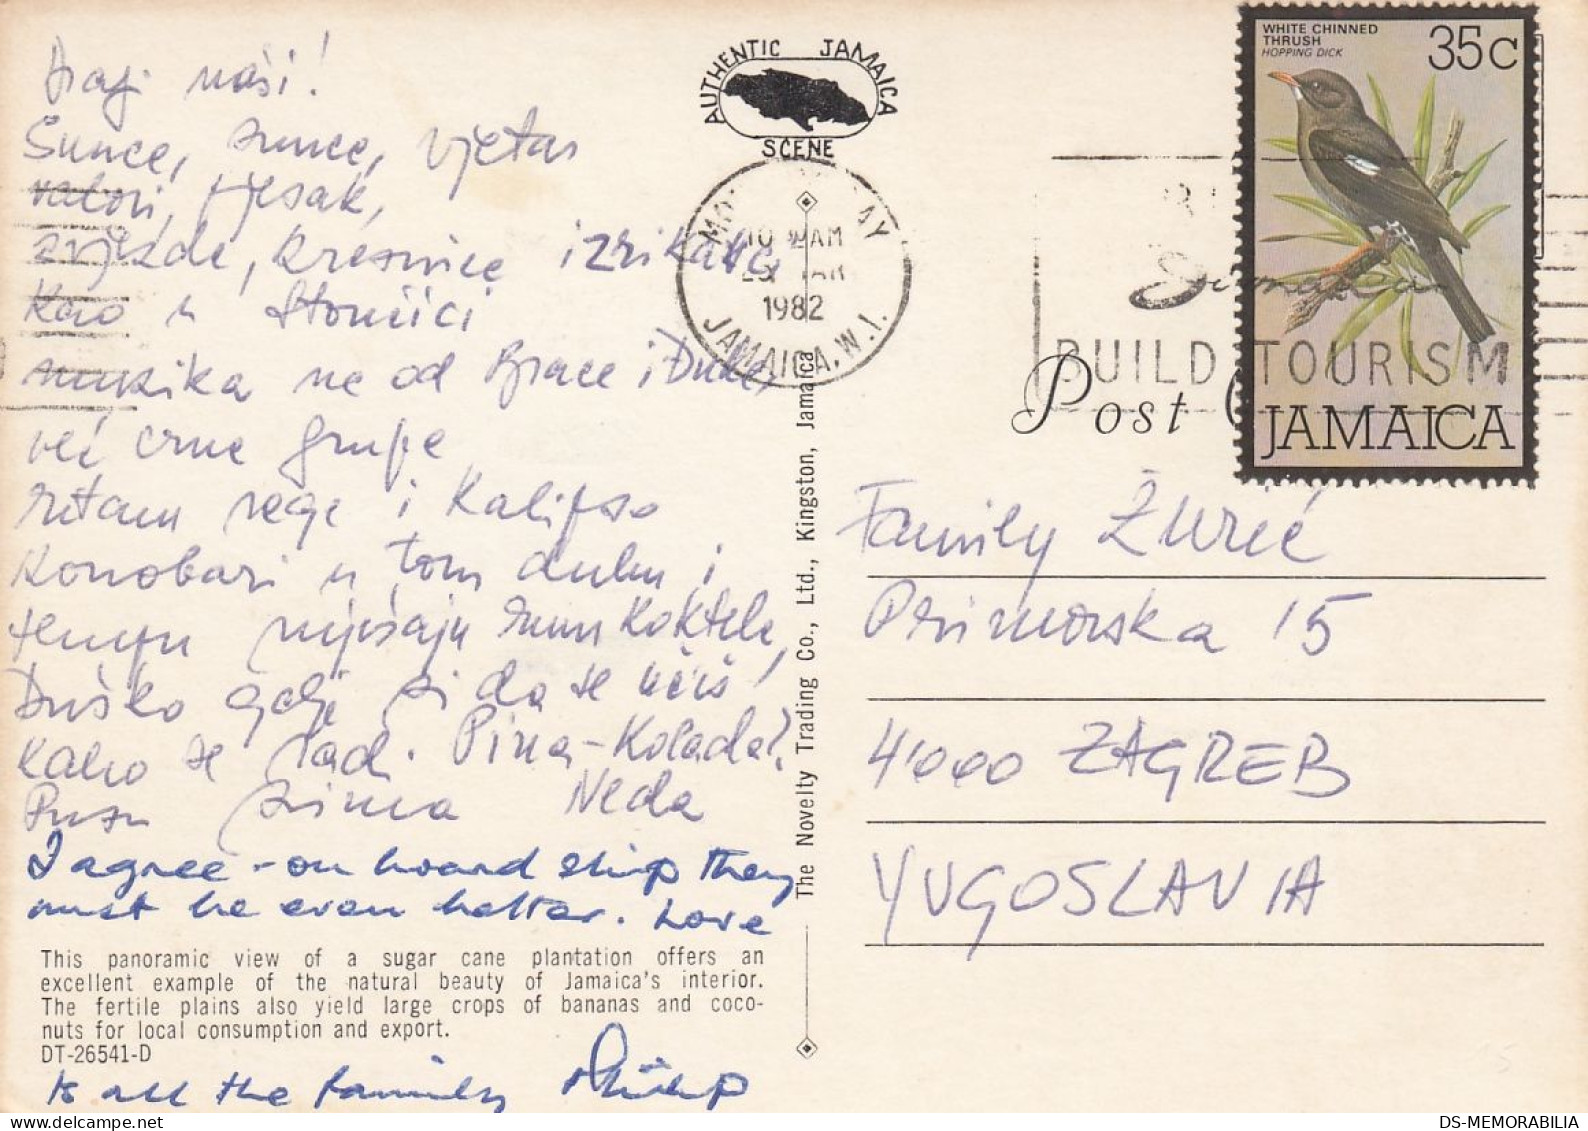 Dragi naši!
Sunce, sunce, vjetar
valovi, pjesak,
zvjezde, kresnice izrikavci
kao u Stončici
muzika ne od Brace i Duleta
već crne grupe
ritam rege i Kalipso
Konobari u tom duhu i
tempu miješaju rum koktele,
Duško gdje si da se učiš
kako se radi Pina-Kolada?
Pusu prima Neda
I agree - on board ship they
must be even better. Love
to all the family Philip
This panoramic view of a sugar cane plantation offers an
excellent example of the natural beauty of Jamaica's interior.
The fertile plains also yield large crops of bananas and coco-
nuts for local consumption and export.
DT-26541-D
AUTHENTIC JAMAICA
SCENE
AM
1982
JAMAICA. W.I.
The Novelty Trading Co., Ltd., Kingston, Jamaica
WHITE CHINNED
THRUSH
HOPPING DICK
35c
JAMAICA
BUILD TOURISM
Post
Family Žurić
Primorska 15
41000 ZAGREB
YUGOSLAVIA
DS-MEMORABILIA